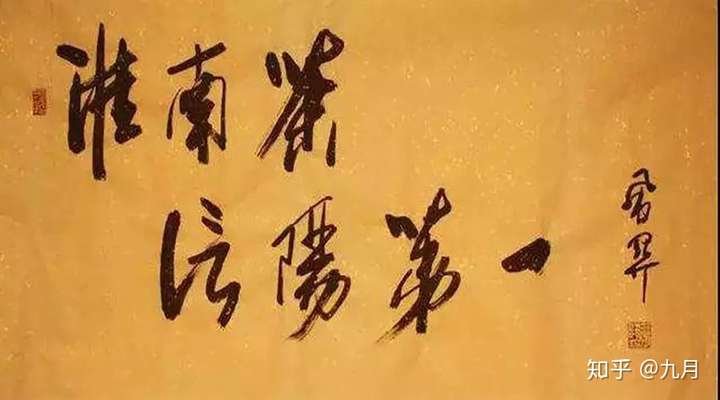 淮南茶
信陽第一
知乎 @九月